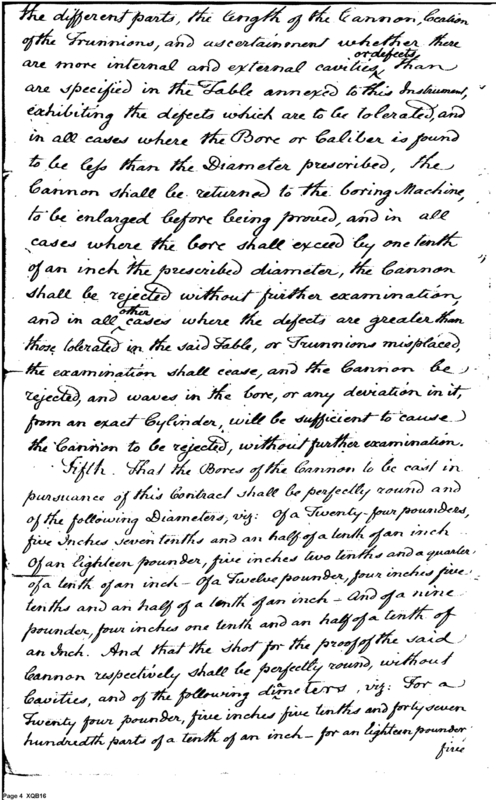 the different parts, the length of the Cannon, location
of the Trunnions, and ascertainment whether there
or defects
are more internal and external cavities, than
are specified in the Table annexed to this Instrument,
exhibiting the defects which are to be tolerated, and
in all cases where the Bore or Caliber is found
to be less than the Diameter prescribed, the
Cannon shall be returned to the boring Machine,
to be enlarged before being proved, and in all
cases where the bore shall exceed by one tenth
of an inch the prescribed diameter, the Cannon
shall be rejected without further examination,
other
and in all cases where the defects are greater than
those tolerated in the said Table, or Trunnions misplaced,
the examination shall cease, and the Cannon be
rejected, and waves in the bore, or any deviation in it,
from an exact Cylinder, will be sufficient to cause
the Cannon to be rejected, without further examination.
Fifth. That the Bores of the Cannon to be cast in
pursuance of this Contract shall be perfectly round and
of the following Diameters, viz: Of a Twenty-four pounders,
five Inches seven tenths and an half of a tenth of an inch
Of an Eighteen pounder, five inches two tenths and a quarter
of a tenth of an inch – Of a Twelve pounder, four inches five
tenths and an half of a tenth of an inch – And of a nine
pounder, four inches one tenth and an half of a tenth of
an Inch. And that the shot for the proof of the said
Cannon respectively shall be perfectly round, without
Cavities, and of the following diameters, viz: For a
Twenty four pounder, five inches five tenths and forty seven
hundredth parts of a tenth of an inch – for an Eighteen pounder
five
Page 4 XQB16